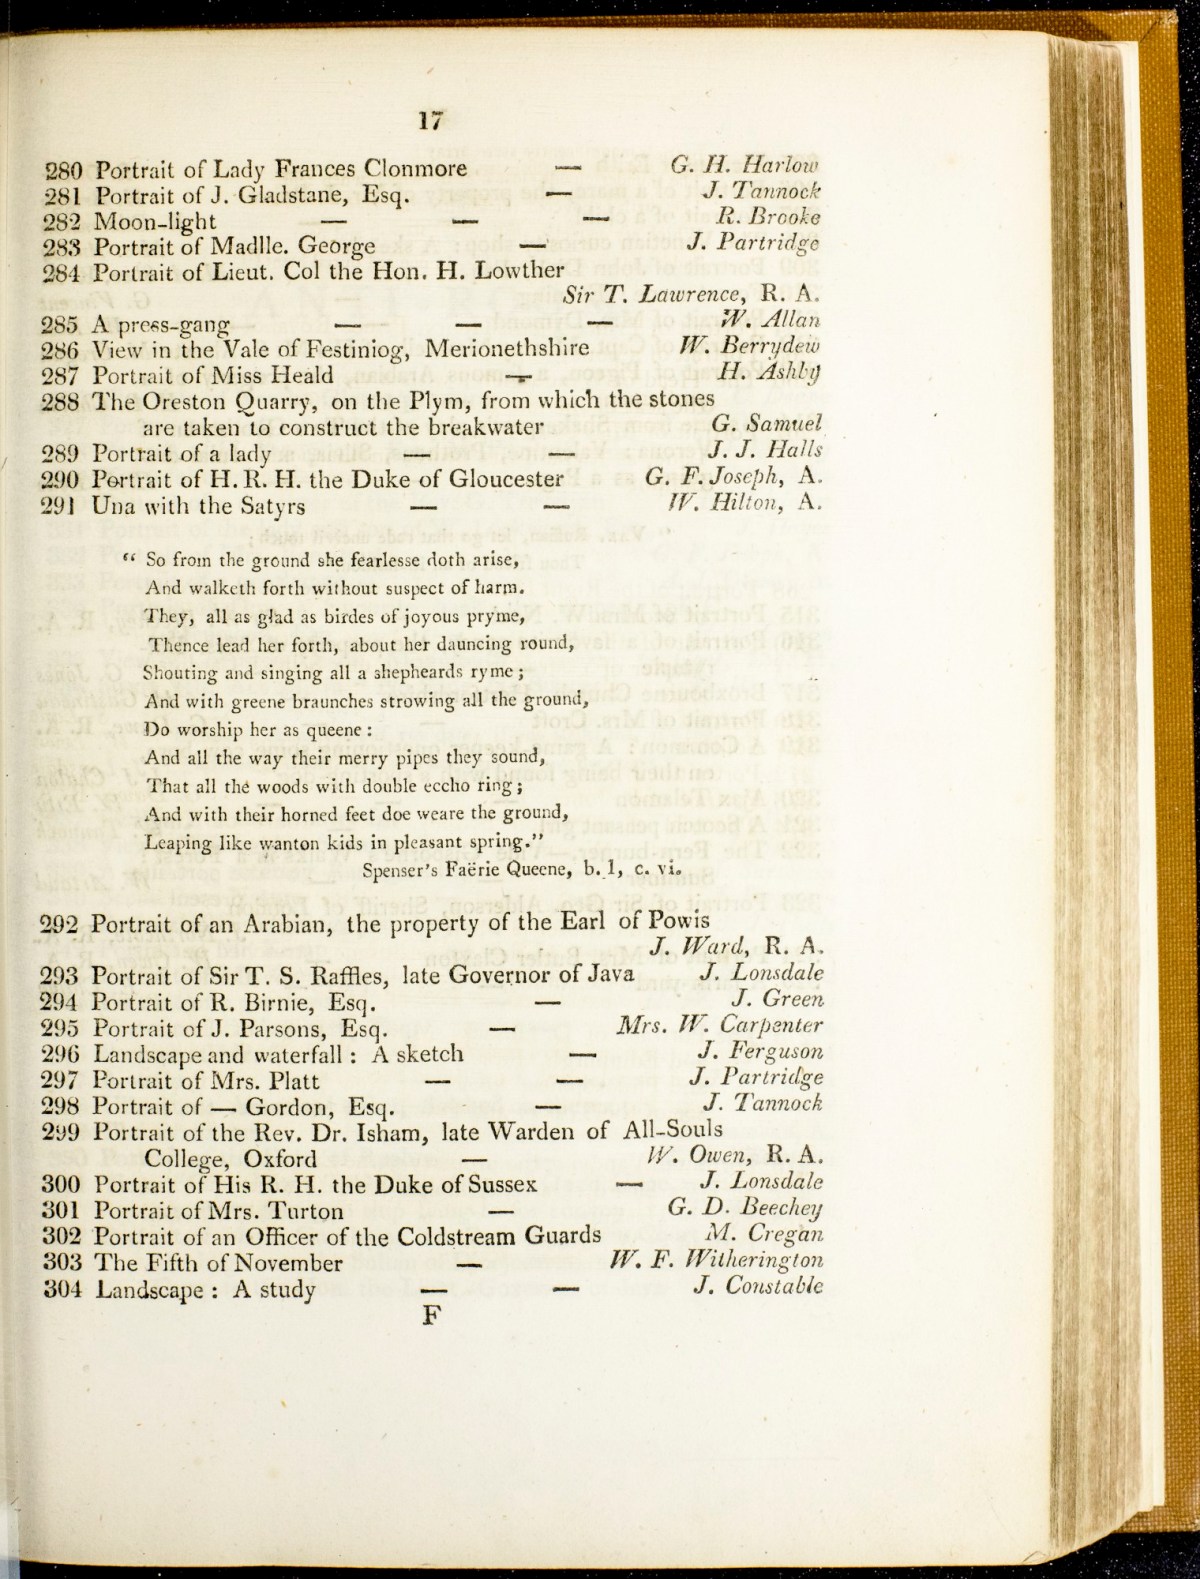 17
280 Portrait of Lady Frances Clonmore — G. H. Harlow
281 Portrait of J. Gladstane, Esq. — J. Tannock
282 Moon-light — — — R. Brooke
283 Portrait of Madlle. George — J. Partridge
284 Portrait of Lieut. Col the Hon. H. Lowther
Sir T. Lawrence, R. A.
285 A press-gang — — — W. Allan
286 View in the Vale of Festiniog, Merionethshire W. Berrydew
287 Portrait of Miss Heald — H. Ashby
288 The Oreston Quarry, on the Plym, from which the stones
are taken to construct the breakwater G. Samuel
289 Portrait of a lady — — J. J. Halls
290 Portrait of H. R. H. the Duke of Gloucester G. F. Joseph, A.
291 Una with the Satyrs — — W. Hilton, A.
“ So from the ground she fearlesse doth arise,
And walketh forth without suspect of harm.
They, all as glad as birdes of joyous pryme,
Thence lead her forth, about her dauncing round,
Shouting and singing all a shepheards ryme ;
And with greene braunches strowing all the ground,
Do worship her as queene :
And all the way their merry pipes they sound,
That all the woods with double eccho ring ;
And with their horned feet doe weare the ground,
Leaping like wanton kids in pleasant spring.”
Spenser's Faërie Queene, b. 1, c. vi.
292 Portrait of an Arabian, the property of the Earl of Powis
J. Ward, R. A.
293 Portrait of Sir T. S. Raffles, late Governor of Java J. Lonsdale
294 Portrait of R. Birnie, Esq. — J. Green
295 Portrait of J. Parsons, Esq. — Mrs. W. Carpenter
296 Landscape and waterfall : A sketch — J. Ferguson
297 Portrait of Mrs. Platt — — J. Partridge
298 Portrait of — Gordon, Esq. — J. Tannock
299 Portrait of the Rev. Dr. Isham, late Warden of All-Souls
College, Oxford — W. Owen, R. A.
300 Portrait of His R. H. the Duke of Sussex — J. Lonsdale
301 Portrait of Mrs. Turton — G. D. Beechey
302 Portrait of an Officer of the Coldstream Guards M. Cregan
303 The Fifth of November — W. F. Witherington
304 Landscape : A study — — J. Constable
F